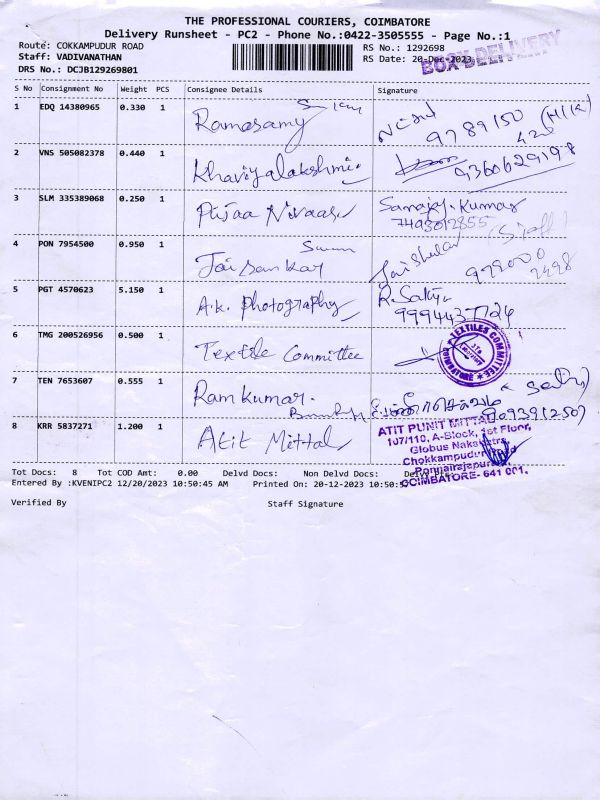 THE PROFESSIONAL COURIERS, COIMBATORE
Delivery Runsheet - PC2 - Phone No.:0422-3505555 - Page No.:1
Route: COKKAMPUDUR ROAD
RS No.: 1292698
Staff: VADIVANATHAN
RS Date: 20-Dec-2023
BOX DELIVERY
DRS No.: DCJB129269801
S No Consignment No Weight PCS Consignee Details Signature
1 EDQ 14380965 0.330 1 Ramasamy
9789150
2 VNS 505082378 0.440 1 Khaviyalakshmi.
9360629198
3 SLM 335389068 0.250 1 Pujaa Nivaas
Kumar
7493012855
4 PON 7954500 0.950 1 Jai Sankar
5 PGT 4570623 5.150 1 A.K. Photography
R.
6 TMG 200526956 0.500 1 Textile Committee
TEXTILES COMMITTEE COIMBATORE
7 TEN 7653607 0.555 1 Ram Kumar.
8 KRR 5837271 1.200 1 Atit Mittal
ATIT PUNIT MITTAL
107/110, A-Block, 1st Floor,
Globus
Chokkampudur Road
Ponnairajapuram,
COIMBATORE- 641 001.
Tot Docs: 8 Tot COD Amt: 0.00 Delvd Docs: Non Delvd Docs:
Entered By :KVENIPC2 12/20/2023 10:50:45 AM Printed On: 20-12-2023
Verified By Staff Signature